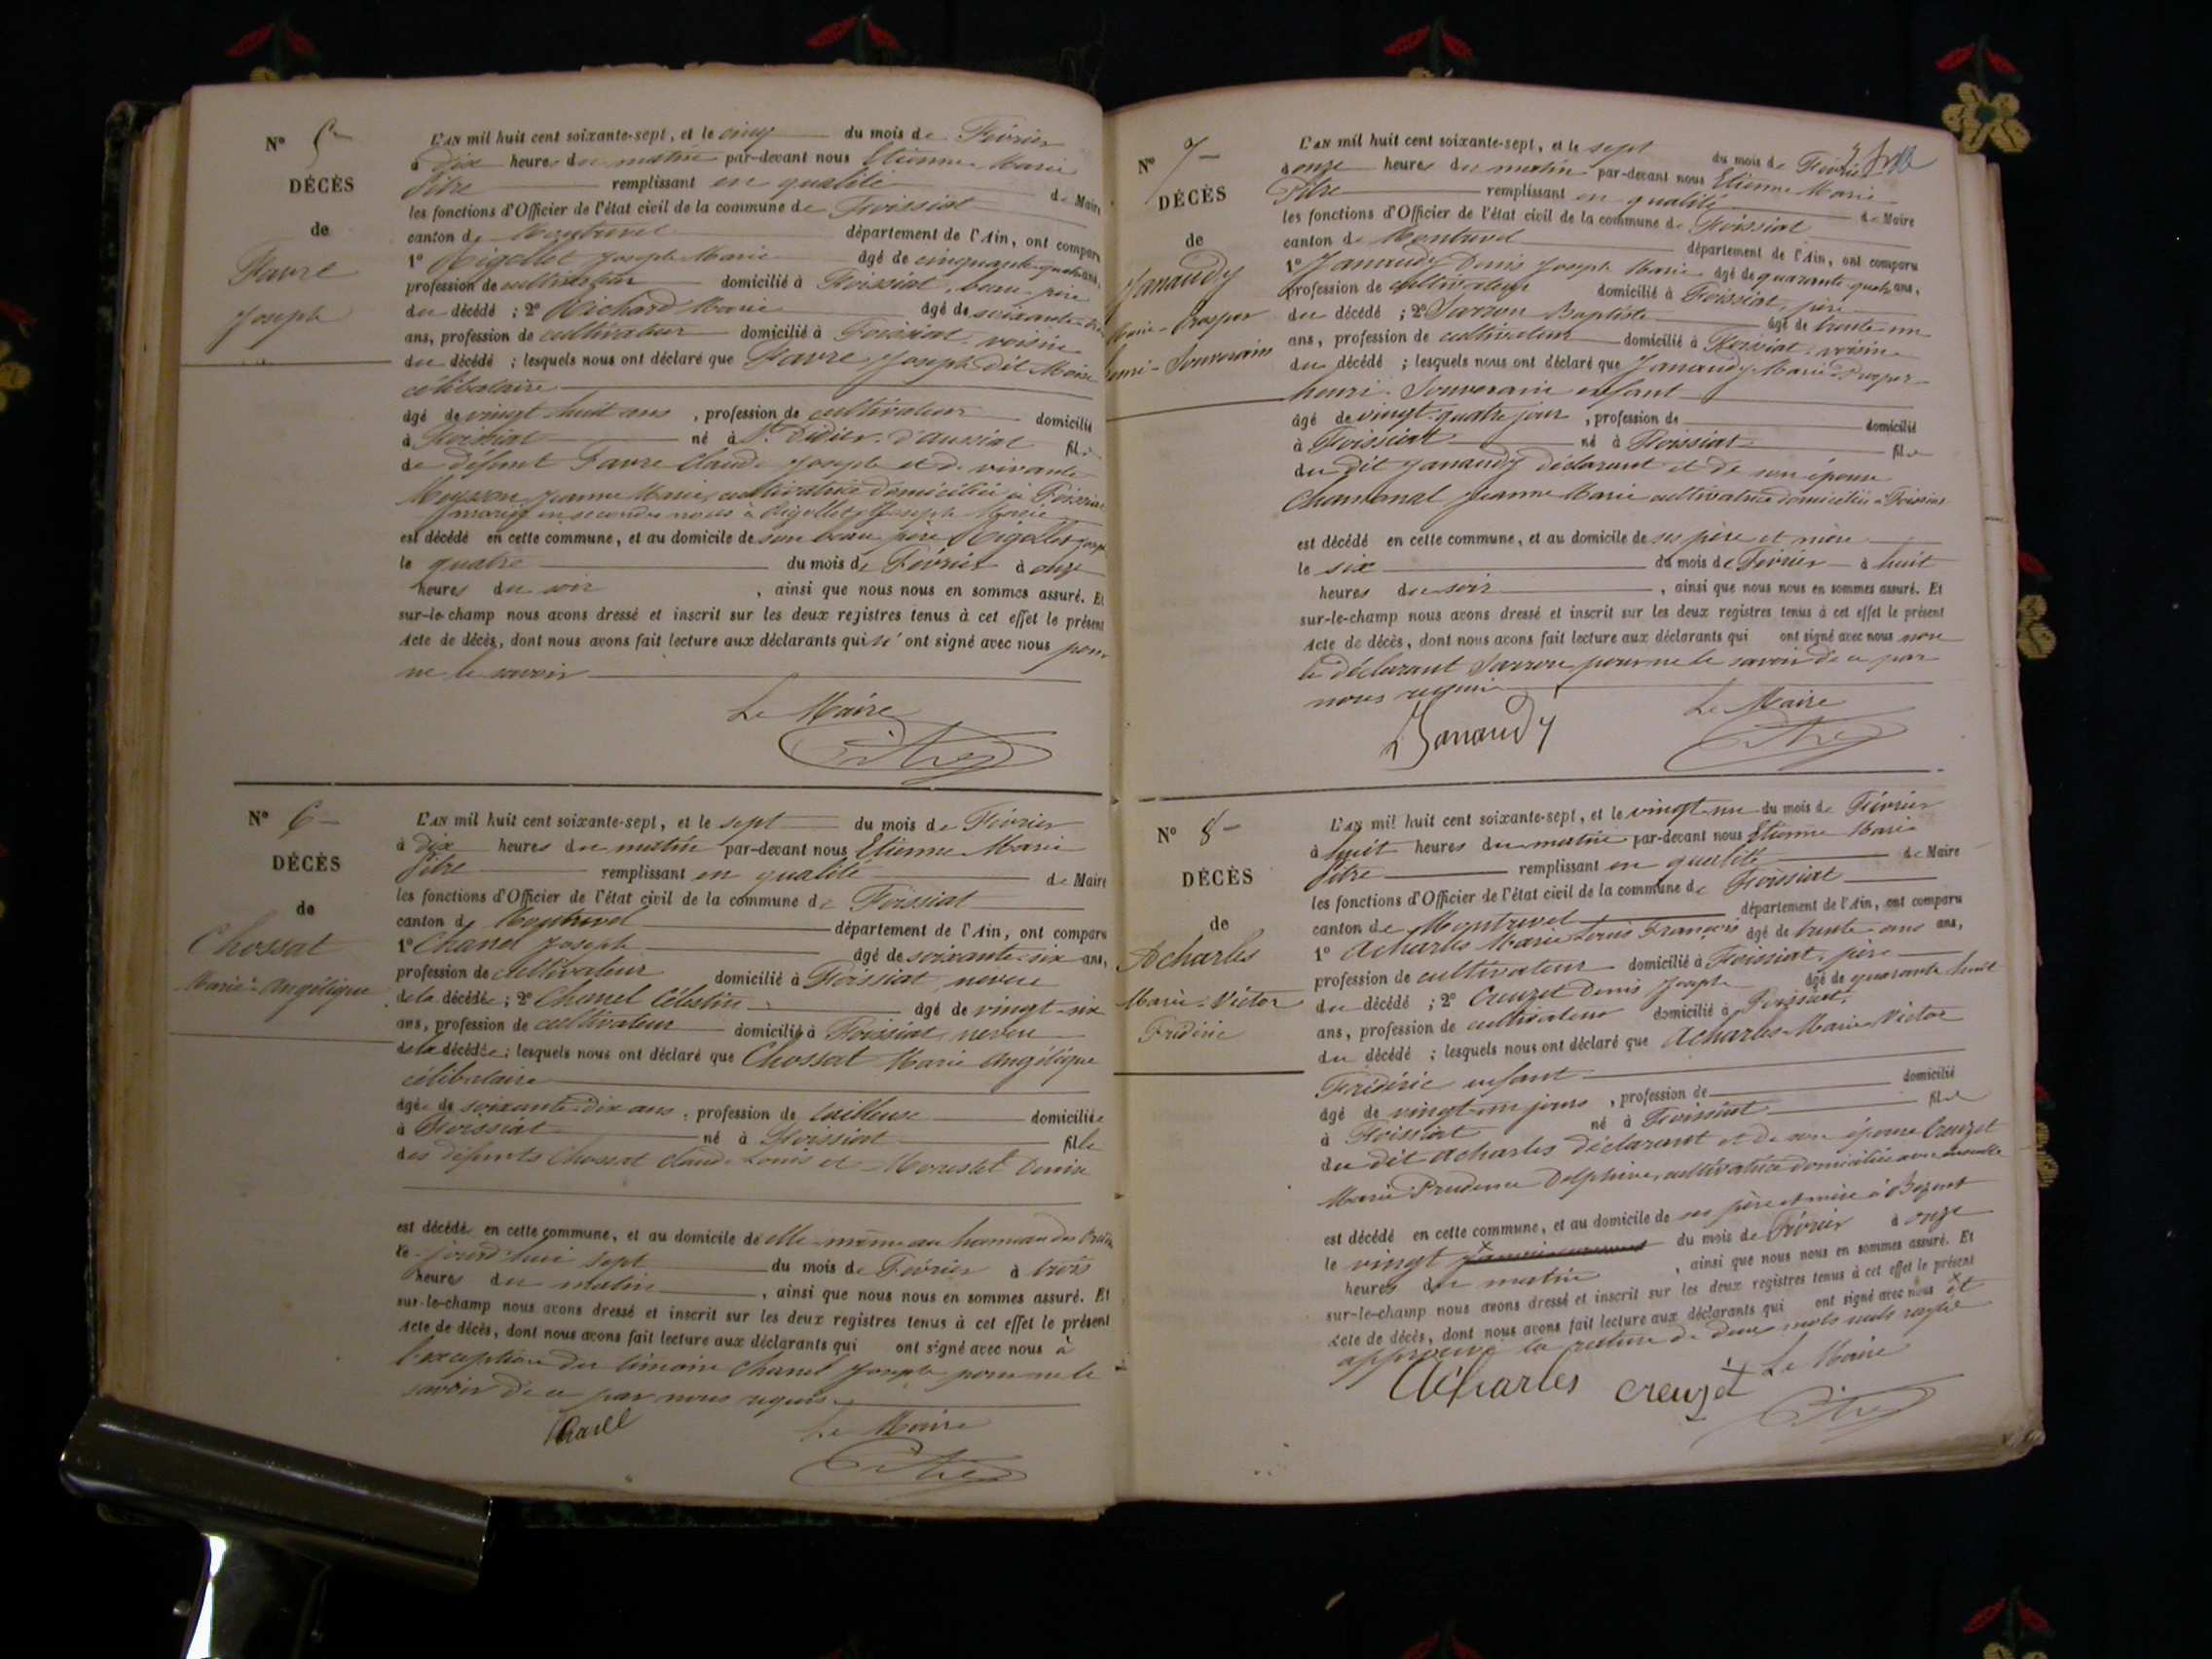 N° 5
DÉCÈS
de
Favre
Joseph
L'AN mil huit cent soixante-sept, et le cinq du mois de Février
à dix heures du matin par-devant nous Etienne Marie
Pitre remplissant en qualité de Maire
les fonctions d'Officier de l'état civil de la commune de Foissiat
canton de Montrevel département de l'Ain, ont comparu
1° Rigollet Joseph Marie âgé de cinquante-quatre ans,
profession de cultivateur domicilié à Foissiat, beau-père
du décédé ; 2° Richard Marie âgé de soixante
ans, profession de cultivateur domicilié à Foissiat voisin
du décédé ; lesquels nous ont déclaré que Favre Joseph dit Moise
célibataire
âgé de vingt huit ans, profession de cultivateur domicilié
à Foissiat né à St Didier d'aussiat fils
de défunt Favre Claude Joseph et de vivante
Jeanne Marie, cultivatrice domiciliée à Foissiat
en secondes noces à Rigollet Joseph Marie
est décédé en cette commune, et au domicile de son beau père Rigollet
le quatre du mois de Février à onze
heures du soir, ainsi que nous nous en sommes assuré. Et
sur-le-champ nous avons dressé et inscrit sur les deux registres tenus à cet effet le présent
Acte de décès, dont nous avons fait lecture aux déclarants qui n'ont signé avec nous pour
ne le savoir
Le Maire
Pitre
N° 6
DÉCÈS
de
Chossat
Marie-Angélique
L'AN mil huit cent soixante-sept, et le sept du mois de Février
à dix heures du matin par-devant nous Etienne Marie
Pitre remplissant en qualité de Maire
les fonctions d'Officier de l'état civil de la commune de Foissiat
canton de Montrevel département de l'Ain, ont comparu
1° Chanel Joseph âgé de soixante-six ans,
profession de cultivateur domicilié à Foissiat neveu
de la décédée ; 2° Chanel Célestin âgé de vingt-six
ans, profession de cultivateur domicilié à Foissiat neveu
de la décédée ; lesquels nous ont déclaré que Chossat Marie Angélique
célibataire
âgée de soixante-dix ans, profession de tailleuse domiciliée
à Foissiat né à Foissiat fille
des défunts Chossat Claude Louis et Morestel Denise
est décédée en cette commune, et au domicile de elle-même au hameau des
le jourd'hui sept du mois de Février à trois
heures du matin, ainsi que nous nous en sommes assuré. Et
sur-le-champ nous avons dressé et inscrit sur les deux registres tenus à cet effet le présent
Acte de décès, dont nous avons fait lecture aux déclarants qui ont signé avec nous à
l'exception du témoin Chanel Joseph pour ne le
savoir de ce par nous requis
Le Maire
Pitre
N° 7
DÉCÈS
de
Janaudy
Marie-Prosper
henri-Souverain
L'AN mil huit cent soixante-sept, et le sept du mois de Février
à onze heures du matin par-devant nous Etienne Marie
Pitre remplissant en qualité de Maire
les fonctions d'Officier de l'état civil de la commune de Foissiat
canton de Montrevel département de l'Ain, ont comparu
1° Janaudy Denis Joseph Marie âgé de quarante-quatre ans,
profession de cultivateur domicilié à Foissiat, père
du décédé ; 2° Sarron Baptiste âgé de trente-un
ans, profession de cultivateur domicilié à Foissiat, voisin
du décédé ; lesquels nous ont déclaré que Janaudy Marie-Prosper
henri-Souverain enfant
âgé de vingt-quatre jours, profession de domicilié
à Foissiat né à Foissiat fils
du dit Janaudy déclarant et de son épouse
Jeanne Marie cultivatrice domiciliée à Foissiat
est décédé en cette commune, et au domicile de ses père et mère
le six du mois de Février à huit
heures du soir, ainsi que nous nous en sommes assuré. Et
sur-le-champ nous avons dressé et inscrit sur les deux registres tenus à cet effet le présent
Acte de décès, dont nous avons fait lecture aux déclarants qui ont signé avec nous non
le déclarant Sarron pour ne le savoir de ce par
nous requis
Le Maire
Janaudy
Pitre
N° 8
DÉCÈS
de
Acharles
Marie-Victor
Frédéric
L'AN mil huit cent soixante-sept, et le vingt-un du mois de Février
à huit heures du matin par-devant nous Etienne Marie
Pitre remplissant en qualité de Maire
les fonctions d'Officier de l'état civil de la commune de Foissiat
canton de Montrevel département de l'Ain, ont comparu
1° Acharles Marie Louis François âgé de trente ans,
profession de cultivateur domicilié à Foissiat, père
du décédé ; 2° Creuzet Denis Joseph âgé de quarante huit
ans, profession de cultivateur domicilié à Foissiat,
du décédé ; lesquels nous ont déclaré que Acharles Marie Victor
Frédéric enfant
âgé de vingt-un jours, profession de domicilié
à Foissiat né à Foissiat fils
du dit Acharles déclarant et de son épouse Creuzet
Marie Prudence Delphine, cultivatrice domiciliée avec ensemble
est décédé en cette commune, et au domicile de ses père et mère à Bezent
le vingt du mois de Février à onze
heures du matin, ainsi que nous nous en sommes assuré. Et
sur-le-champ nous avons dressé et inscrit sur les deux registres tenus à cet effet le présent
Acte de décès, dont nous avons fait lecture aux déclarants qui ont signé avec nous et
approuvé la rature de deux mots nuls rayés
Acharles creuzet Le Maire
Pitre